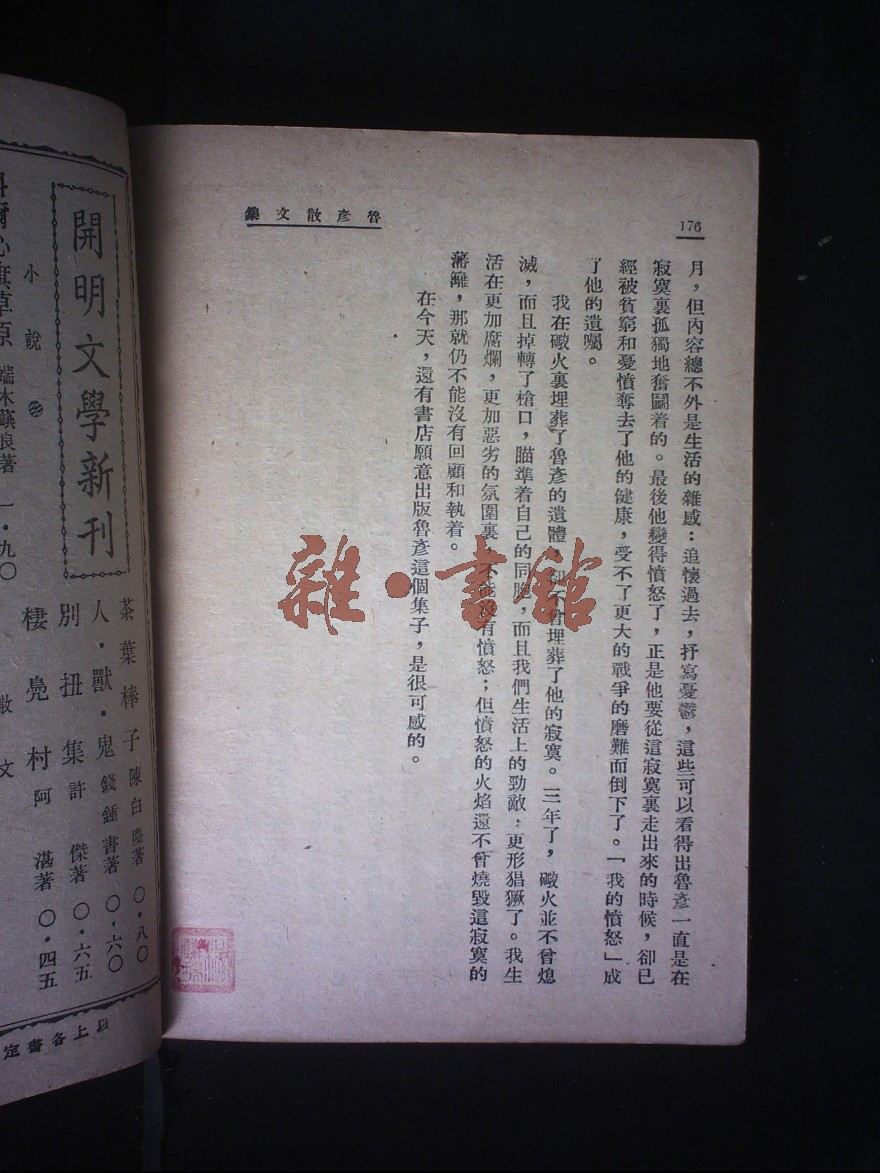 176
魯彥散文集
月，但內容總不外是生活的雜感：追懷過去，抒寫憂鬱，這些可以看得出魯彥一直是在
寂寞裏孤獨地奮鬭着的。最後他變得憤怒了，正是他要從這寂寞裏走出來的時候，卻已
經被貧窮和憂憤奪去了他的健康，受不了更大的戰爭的磨難而倒下了。「我的憤怒」成
了他的遺囑。
我在礮火裏埋葬了魯彥的遺體，卻不曾埋葬了他的寂寞。三年了，礮火並不曾熄
滅，而且掉轉了槍口，瞄準着自己的同胞，而且我們生活上的勁敵：更形猖獗了。我生
活在更加腐爛，更加惡劣的氛圍裏，不能沒有憤怒；但憤怒的火焰還不曾燒毀這寂寞的
藩籬，那就仍不能沒有回顧和執着。
在今天，還有書店願意出版魯彥這個集子，是很可感的。
雜·書館
開明文學新刊
茶葉棒子 陳白塵著 〇·八〇
人·獸·鬼 錢鍾書著 〇·六〇
別扭集 許傑著 〇·六五
棲鳧村 阿湛著 〇·四五
小說
科爾沁旗草原 端木蕻良著 一·九〇
散文
以上各書定